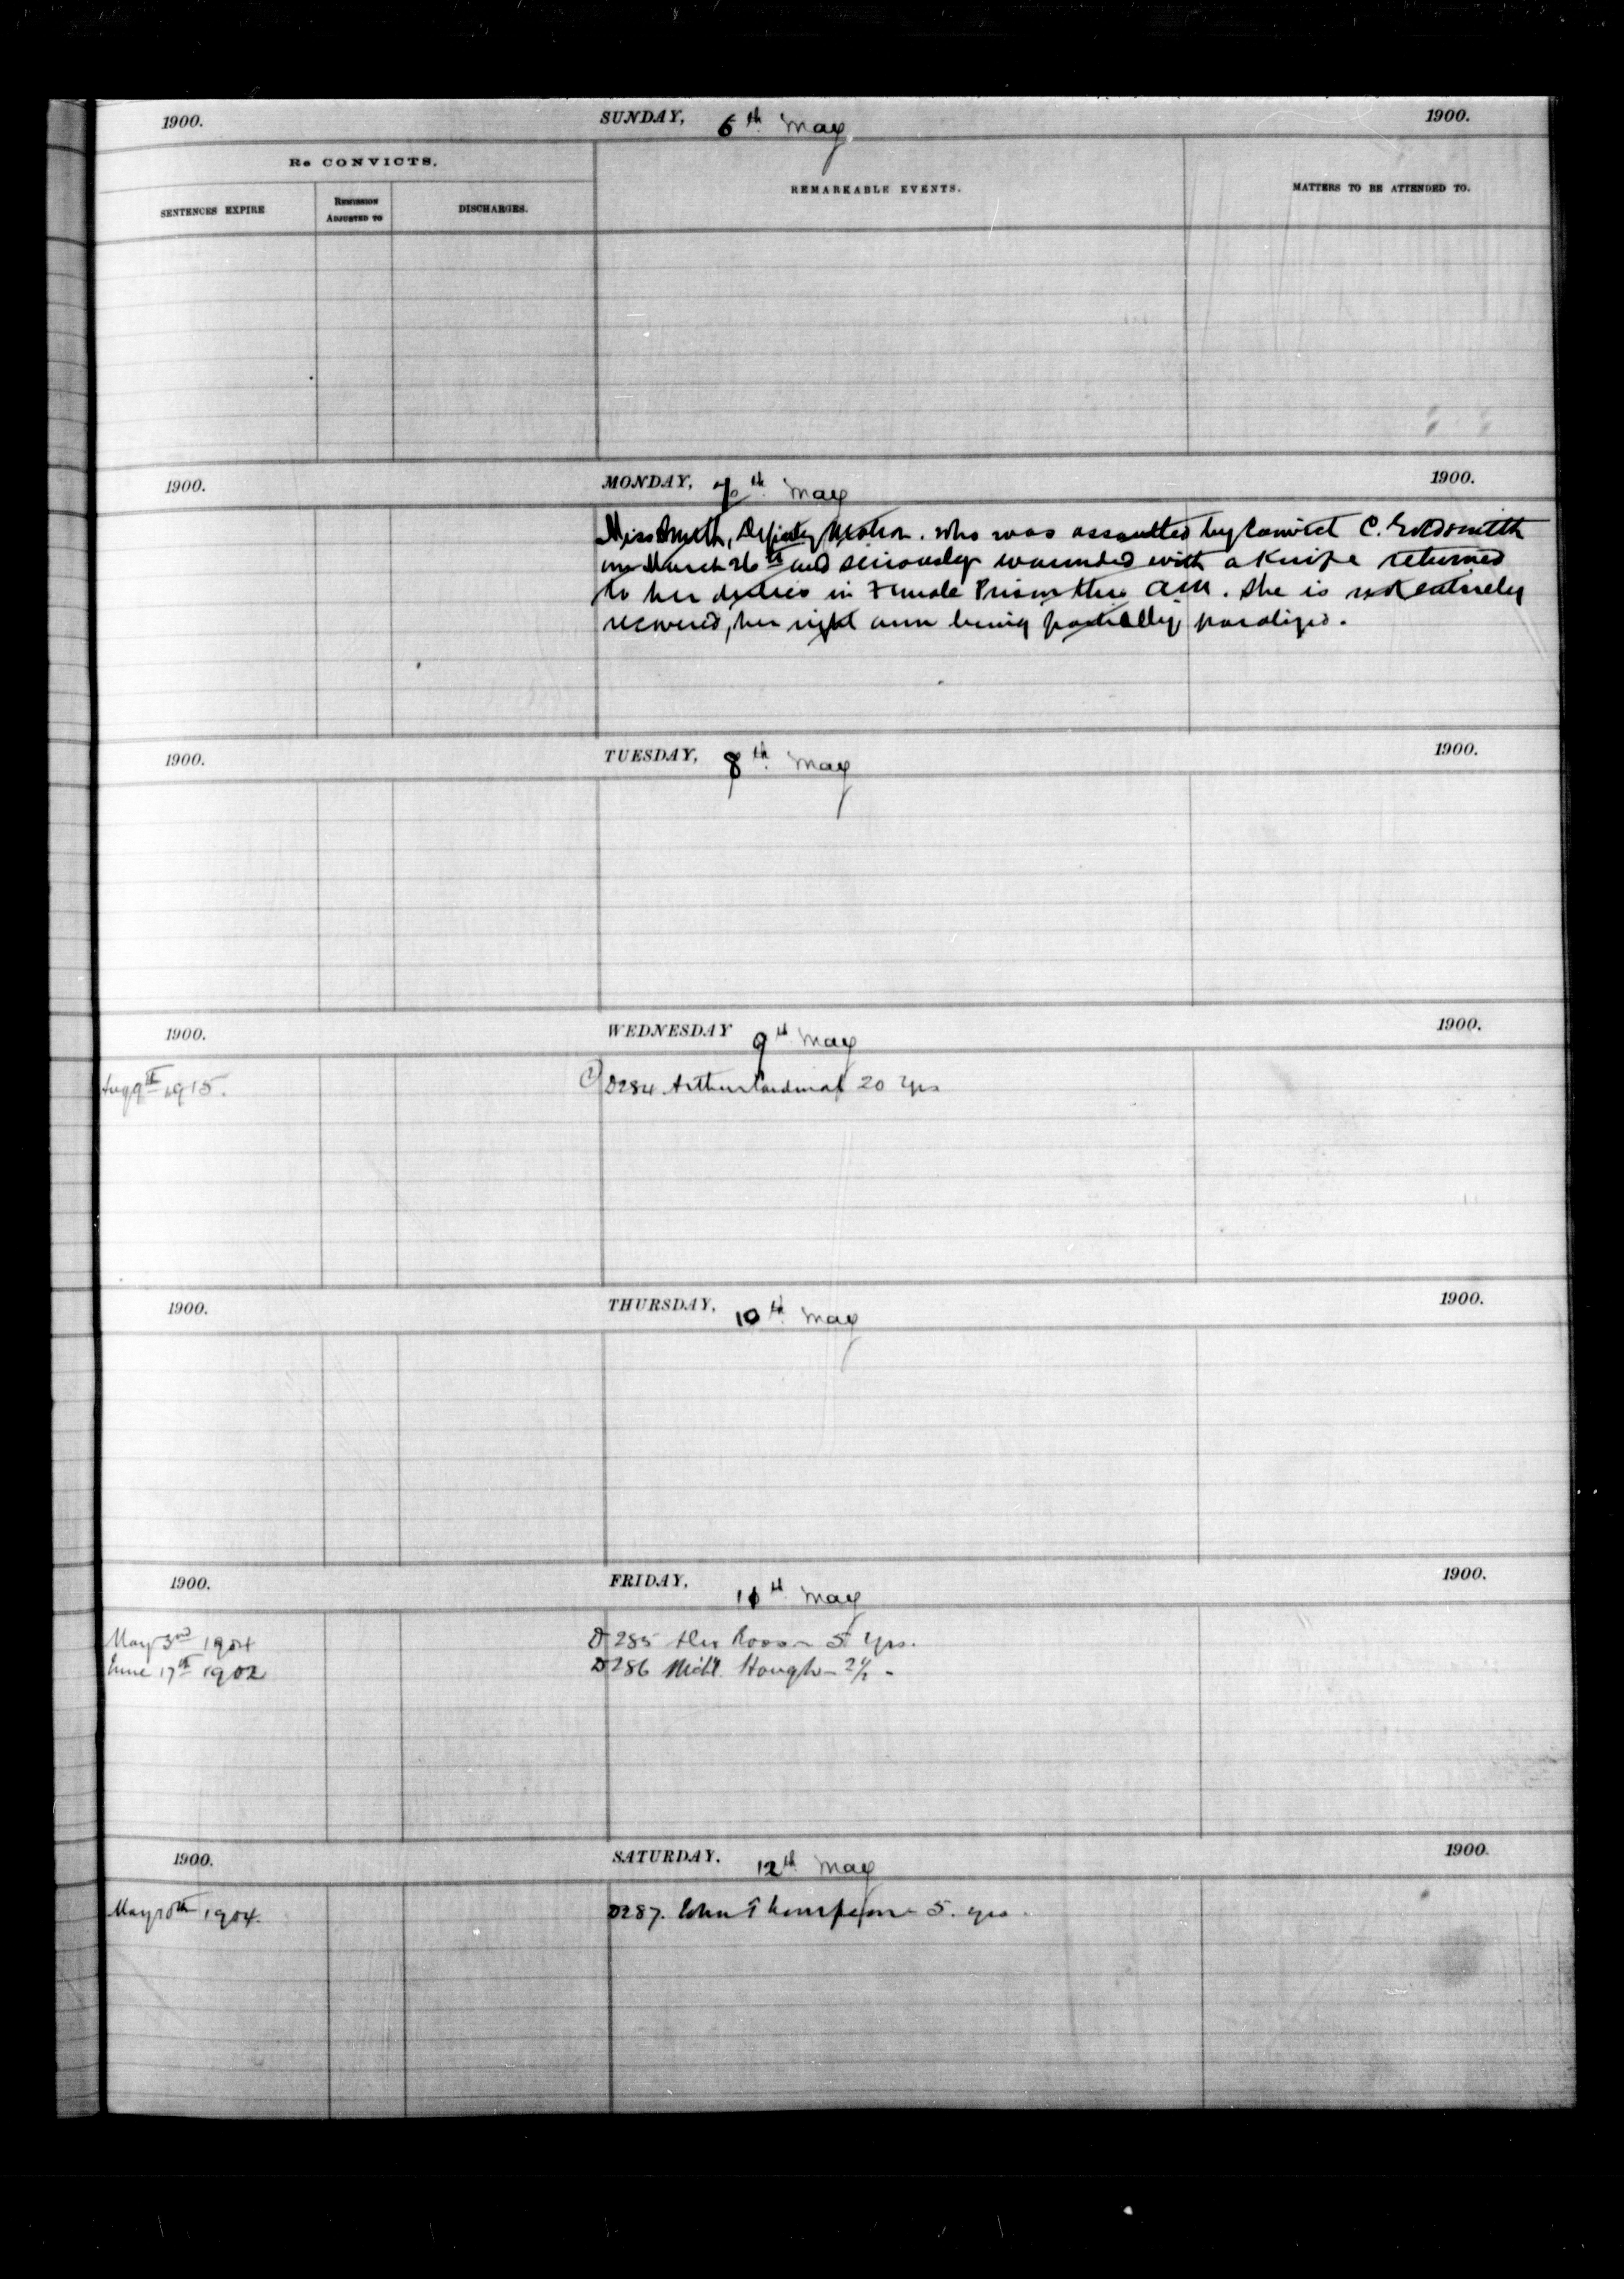 1900. SUNDAY, 6th May 1900.
Re CONVICTS.
SENTENCES EXPIRE REMISSION ADJUSTED TO DISCHARGES. REMARKABLE EVENTS. MATTERS TO BE ATTENDED TO.
1900. MONDAY, 7th May 1900.
Miss Smith, Deputy Matron. who was assaulted by Convict C. Goldsmith
on March 26th and seriously wounded with a Knife returned
to her duties in Female Prison this AM. She is not entirely
recovered, her right arm being partially paralized.
1900. TUESDAY, 8th May 1900.
1900. WEDNESDAY 9th May 1900.
Aug 9th 1915. D284 Arthur Cardinal 20 Yrs
1900. THURSDAY, 10th May 1900.
1900. FRIDAY, 11th May 1900.
May 3rd 1904 D285 Alex Ross - 5 Yrs.
June 17th 1902 D286 Michl. Hough - 2 1/2 "
1900. SATURDAY. 12th May 1900.
May 10th 1904. D287. John Thompson - 5. yrs.